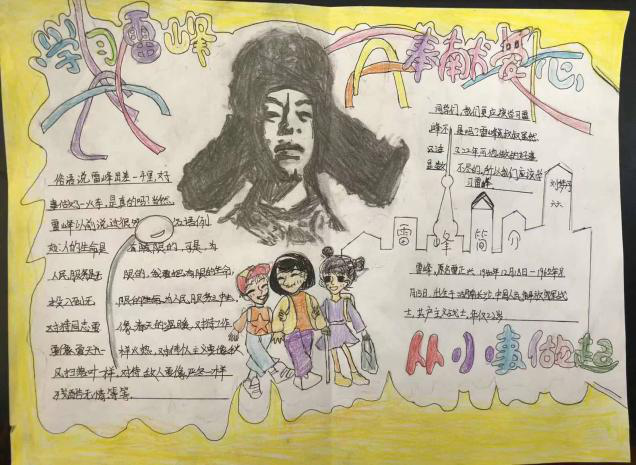 学习雷峰
奉献爱心
俗话说雷峰出差一千里,好
事做了一火车,是真的吗?当然,
雷峰以前说过很多名话例
如:人的生命是有限的,可是,为
人民服务是无限的,我要把有限的生命,
投入到无限的为人民服务之中去,
对待同志要像春天的温暖,对待工作
要像夏天一样火热,对待个人主义要像秋
风扫落叶一样,对待敌人要像严冬一样
残酷无情等等。
同学们,我们更应该学习雷
峰不是吗?雷峰叔叔虽然
只活了22年可他做的好事
是数不尽的,所以我们应该学
习雷峰
雷峰简介
雷峰,原名雷正兴,1940年12月18日-1962年8
月15日,出生于湖南长沙,中国人民解放军战
士,共产主义战士,年仅22岁
从小事做起